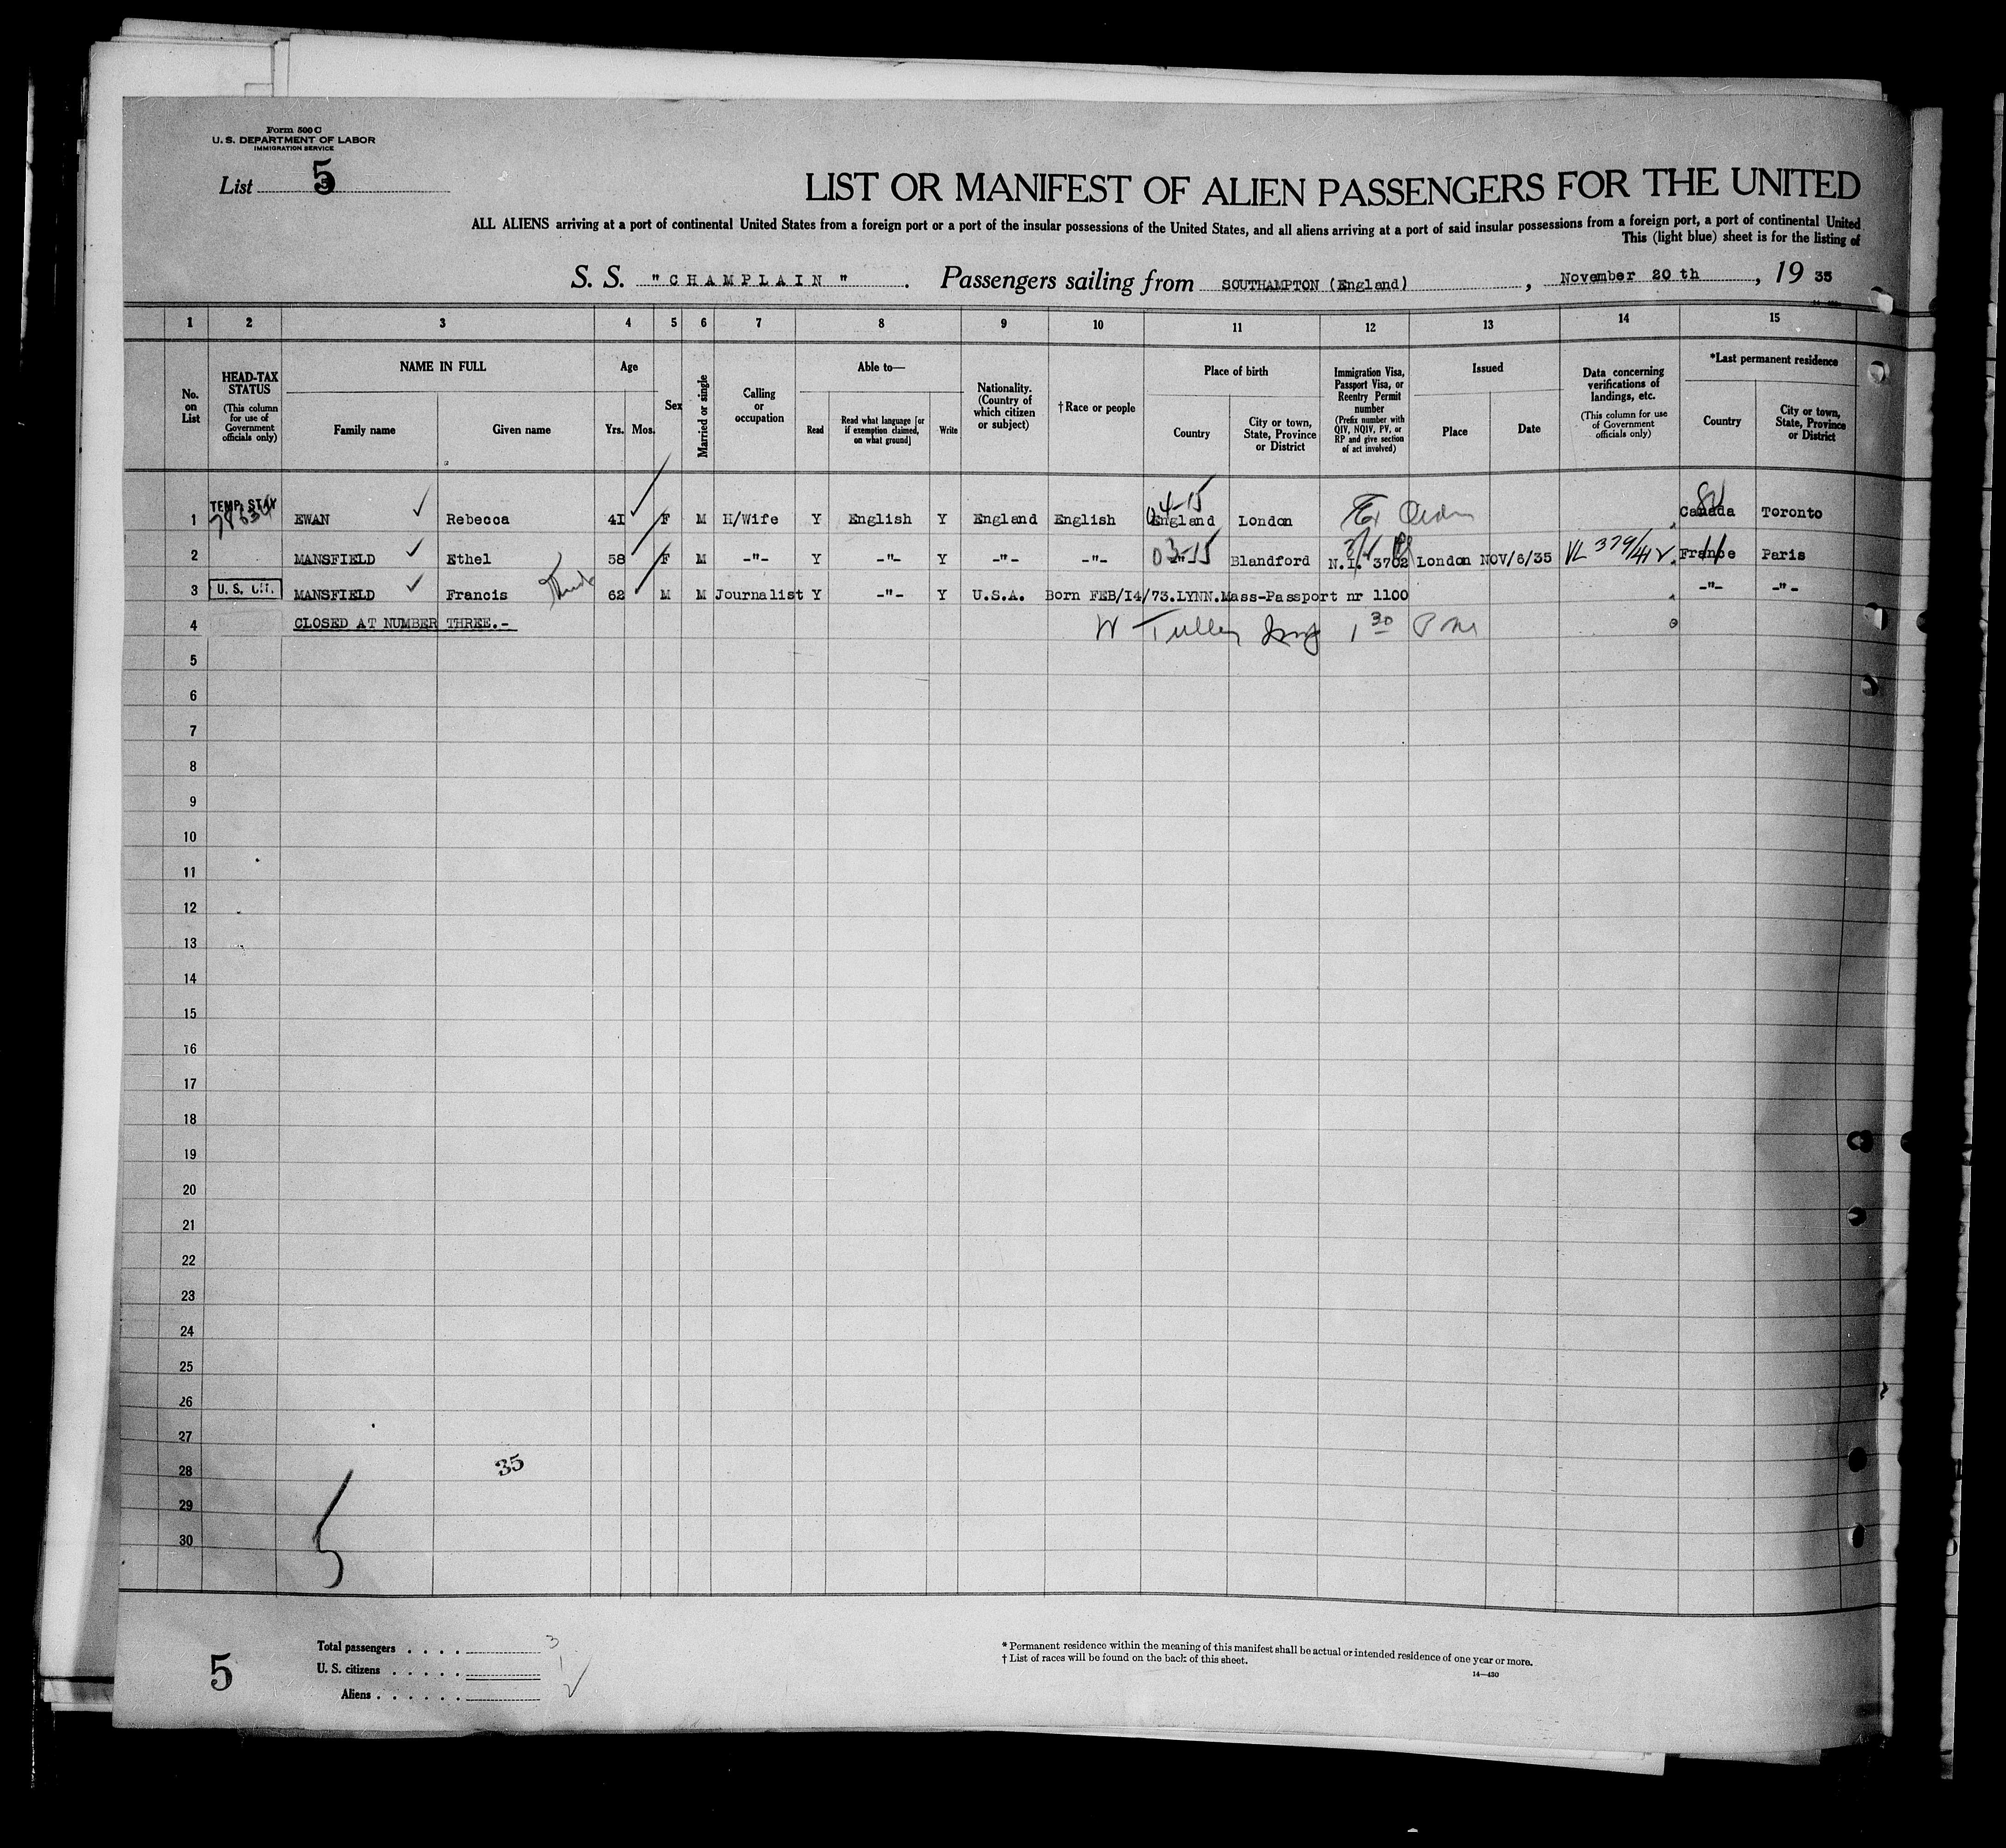 Form 500 C
U. S. DEPARTMENT OF LABOR
IMMIGRATION SERVICE
List 5
LIST OR MANIFEST OF ALIEN PASSENGERS FOR THE UNITED
ALL ALIENS arriving at a port of continental United States from a foreign port or a port of the insular possessions of the United States, and all aliens arriving at a port of said insular possessions from a foreign port, a port of continental United
This (light blue) sheet is for the listing of
S. S. "CHAMPLAIN" . Passengers sailing from SOUTHAMPTON (England) , November 20 th , 19 35
1 2 3 4 5 6 7 8 9 10 11 12 13 14 15
No. on List
HEAD-TAX STATUS
(This column for use of Government officials only)
NAME IN FULL
Family name Given name
Age
Yrs. Mos.
Sex
Married or single
Calling or occupation
Able to—
Read Read what language [or if exemption claimed, on what ground] Write
Nationality. (Country of which citizen or subject)
†Race or people
Place of birth
Country City or town, State, Province or District
Immigration Visa, Passport Visa, or Reentry Permit number
(Prefix number with QIV, NQIV, PV, or RP and give section of act involved)
Issued
Place Date
Data concerning verifications of landings, etc.
(This column for use of Government officials only)
*Last permanent residence
Country City or town, State, Province or District
1 TEMP. STAY EWAN Rebecca 4I F M H/Wife Y English Y England English England London Canada Toronto
04-15
2 MANSFIELD Ethel 58 F M -"- Y -"- Y -"- -"- 03-15 Blandford N.I. 3702 London NOV/6/35 VL 379/412 France Paris
3 U. S. CIT. MANSFIELD Francis 62 M M Journalist Y -"- Y U.S.A. Born FEB/I4/73.LYNN.Mass-Passport nr 1100 -"- -"-
4 CLOSED AT NUMBER THREE.-
W Tulley Insp 1 30 P M
5
6
7
8
9
10
11
12
13
14
15
16
17
18
19
20
21
22
23
24
25
26
27
28
29
30
35
5
5
Total passengers . . . . 3
U. S. citizens . . . . . 1
Aliens . . . . . .
* Permanent residence within the meaning of this manifest shall be actual or intended residence of one year or more.
† List of races will be found on the back of this sheet.
14—430